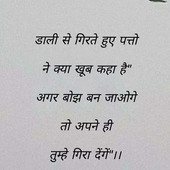 डाली से गिरते हुए पत्तो
ने क्या खूब कहा है"
अगर बोझ बन जाओगे
तो अपने ही
तुम्हे गिरा देंगें"।।